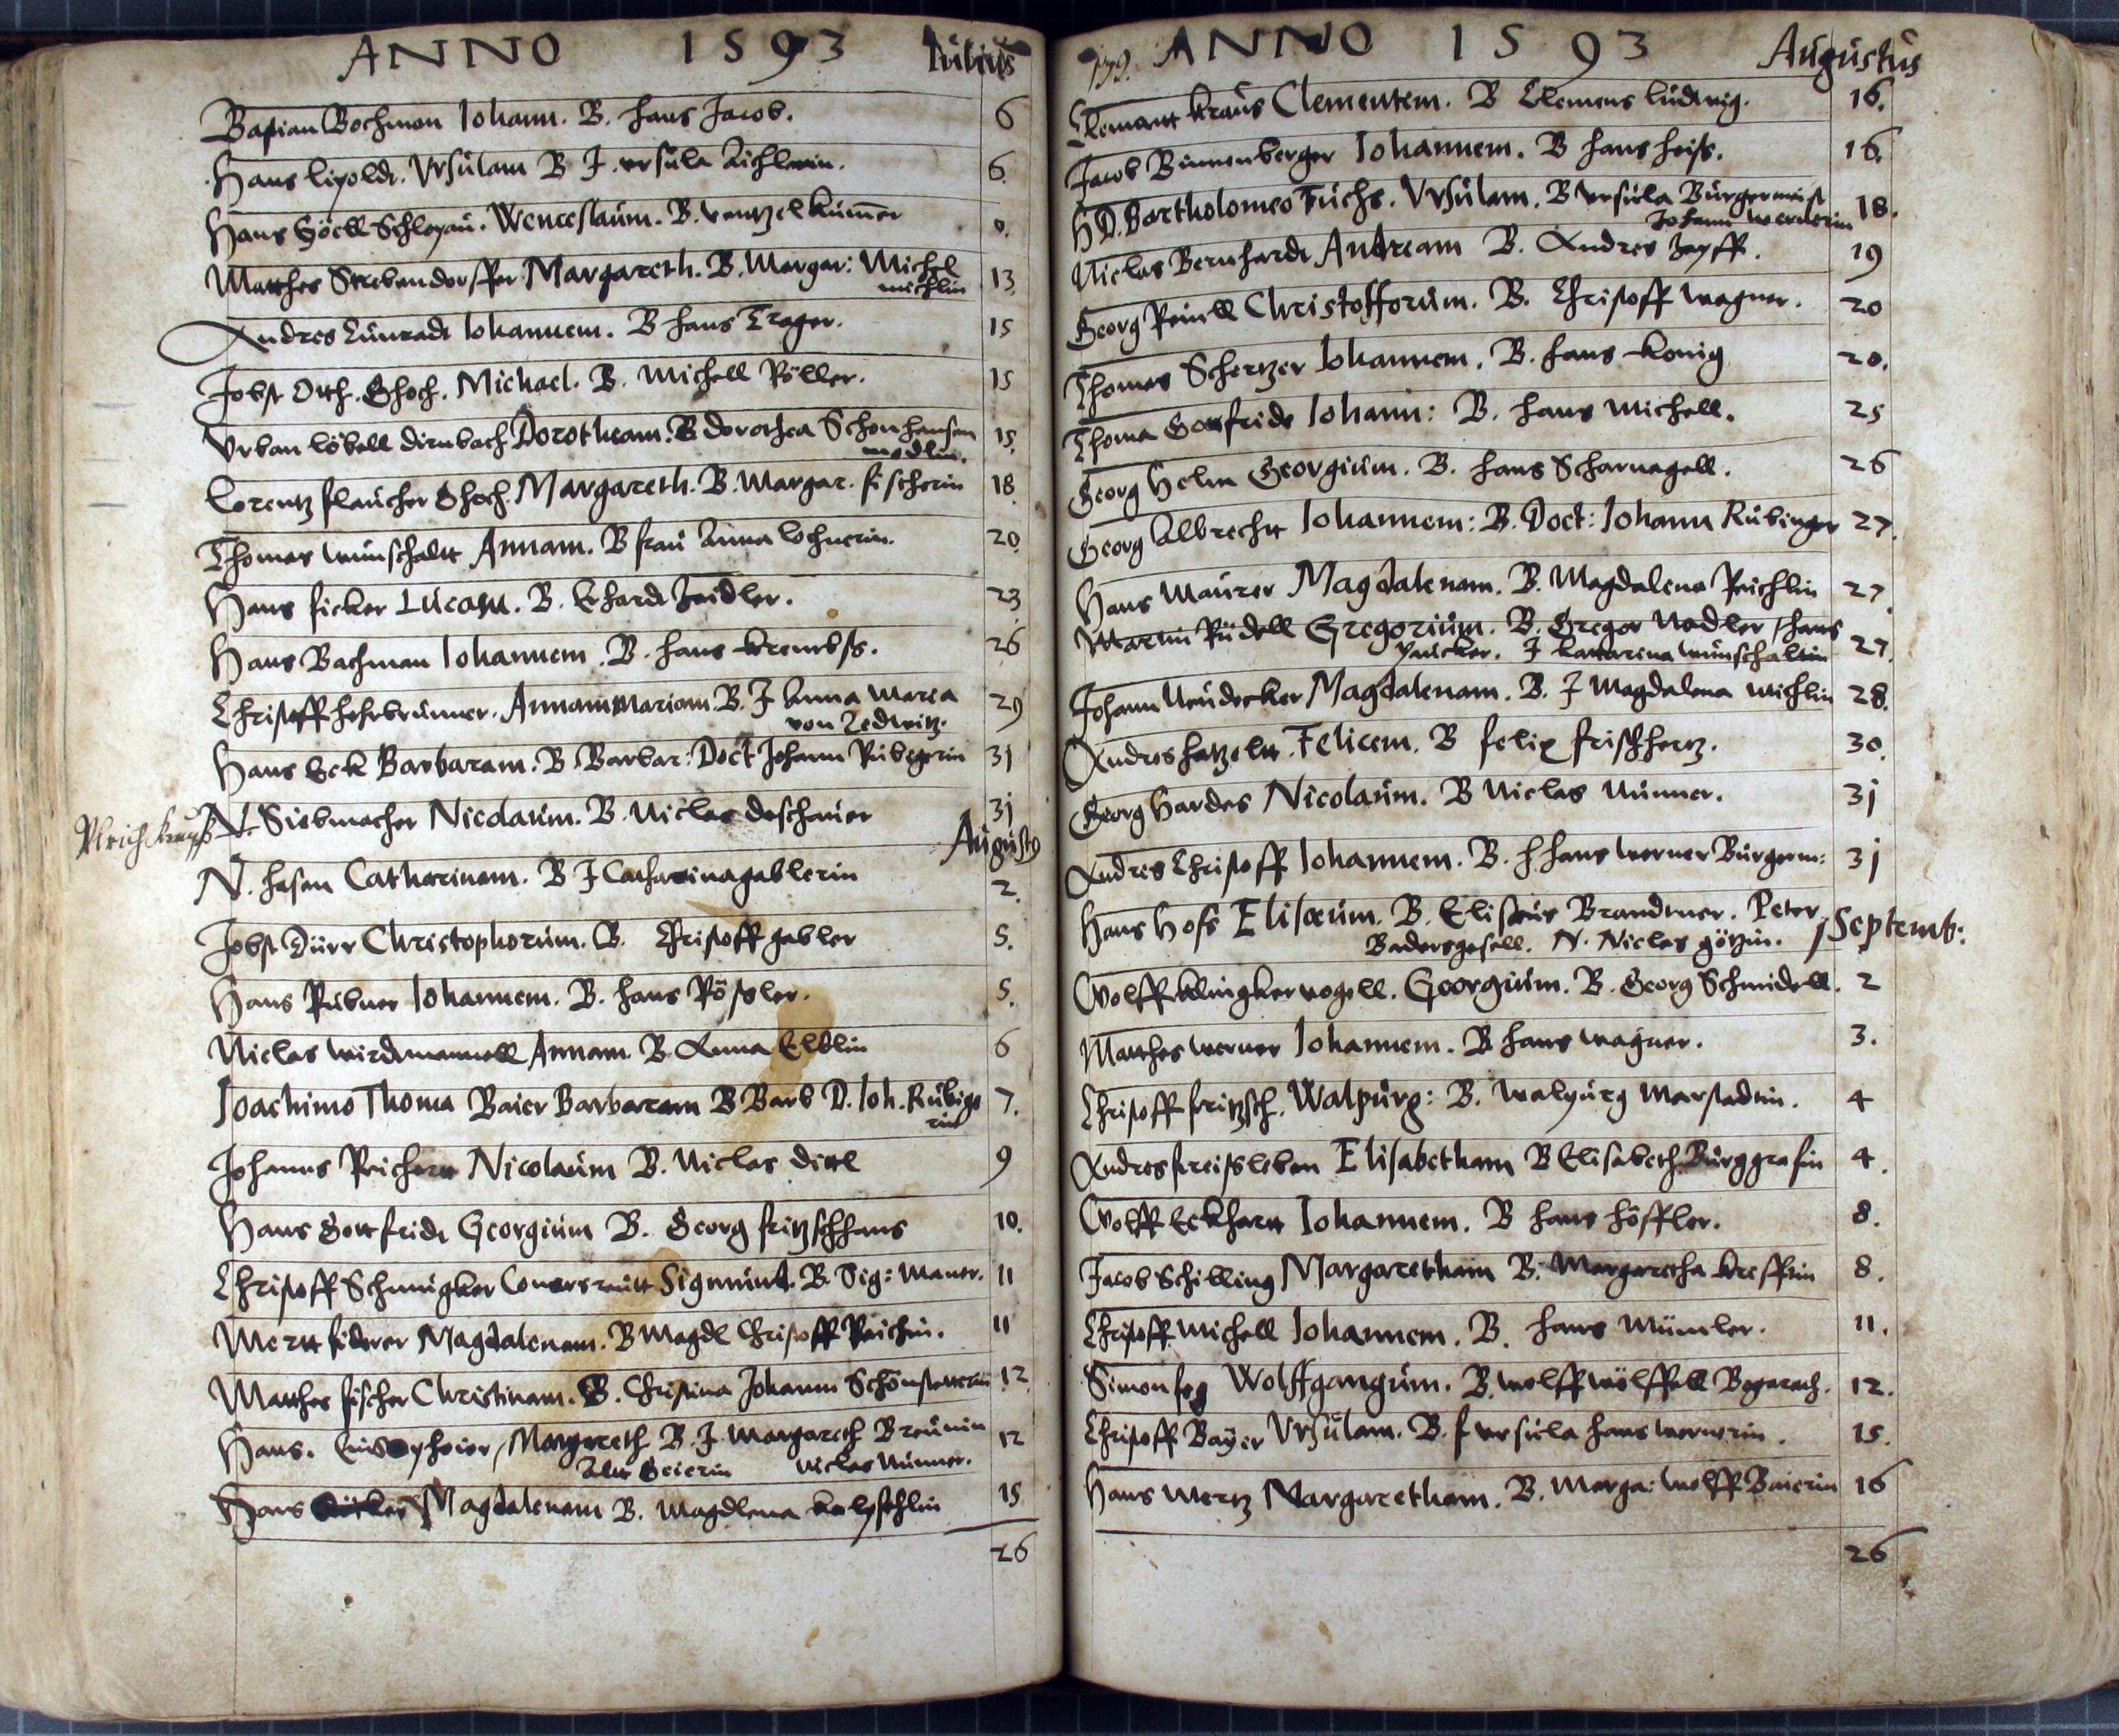 ANNO 1593 Iulius
Bastian Bochman Iohann. B. Hans Jacob. 6
Hans Lipoldt. Vrsulam B. J. Vrsula 6.
Hans Göckl Schlopau. Wenceslaum. B. Wentzel Kumer
Matthes Strebendorffer Margareth. B. Margar: Michel 13
michlin
Andres Cunradt Iohannem. B Hans Trager. 15
Jobst Otth. Michael. B. Michell Röller. 15
Vrban Löbell Dirnbach Dorotheam. B Dorothea Schonhansen 15.
medlin.
Lorentz Margareth. B. Margar. Fischerin 18
Thomas Wunschaltt Annam. B Frau Anna Lochnerin. 20
Hans Ficker Lucam. B. Erhardt Zeidler. 23
Hans Bachman Iohannem. B. Hans Krembs. 26
Christoff Annam Mariam. B. J Anna Maria 29
von Zedwitz.
Hans Eck Barbaram. B. Barbar: Doct Johann Rubigerin 31
Vlrich N. Siebmacher Nicolaum. B. Niclas Deschauer 31
Augusty
N. Hasen Catharinam. B J Catharina Gablerin 2.
Jobst Dürr Christophorum. B. Christoff Gabler 5.
Hans Rubner Iohannem. B. Hans Rößler. 5.
Niclas Wirdemannell Annam. B. Anna Elblin 6
Joachimo Thoma Baier Barbaram B Barb D. Ioh. Rubige 7.
rin
Johannes Nicolaum B. Niclas Dietl 9
Hans Gottfridt Georgium B. Georg Fritzschhans 10.
Christoff Schmugker Conersreutt Sigmund. B. Sig: Maner. 11
Mertt Federer Magdalenam. B Magdl Christoff Reichin. 11
Matthes Fischer Christinam. B. Christina Johann Schönstetterin 12
Hans. Margareth B. J. Margareth Breunin 12
Alte Geierin Niclas Nunner.
Hans Magdalenam B. Magdlena 15
26
ANNO 1593 Augustus
Clemantt Kraus Clementem. B Clemens Ludwig. 16.
Jacob Binnenberger Iohannem. B Hans Heiß. 16.
H D. Bartholomeo Fuchs. Vrsulam. B Vrsula Burgermeist 18.
Johann Wernerin
Niclas Bernhardt Andream B. Andres Zapff. 19
Georg Reinll Christofforum. B. Christoff Wagner. 20
Thomas Schertzer Iohannem. B. Hans Konig 20.
Thoma Gottfridt Iohann: B. Hans Michell. 25
Georg Helm Georgium. B. Hans Scharnagell. 26
Georg Albrechtt Iohannem: B. Doct: Iohann Rubinger 27.
Hans Maurer Magdalenam. B. Magdalena Reichlin 27
Martin Rüdell Gregorium. B. Gregor Nadler, Hans 27.
J Katharina Wunschaltin
Johann Neudecker Magdalenam. B. J Magdalena Michlin 28.
Andres Hatzeltt. Felicem. B Felix Frischhertz. 30.
Georg Hardes Nicolaum. B Niclas Nunner. 31
Andres Christoff Iohannem. B. H Hans Werner Burgerm: 31
Hans Hofs Elisæum. B. Elisæus Brandtner. Peter Septemb:
Badersgesell. N. Niclas Götzin. 1
Wolff Klingkervogell. Georgium. B. Georg Schmidell. 2
Matthes Werner Iohannem. B Hans Wagner. 3.
Christoff Fritzsch. Walpurg: B. Walpurg Marstadtin. 4
Andres Freisleben Elisabetham B Elisabeth Burggrafin 4.
Wolff Eckhartt Iohannem. B Hans Höffler. 8.
Jacob Schilling Margaretham B. Margaretha Kreffin 8.
Christoff Michell Iohannem. B. Hans Mümler. 11.
Simon Wolffgangum. B. Wolff Wölffell 12.
Christoff Bayer Vrsulam. B. F Vrsula Hans Wernerin. 15.
Hans Mertz Margaretham. B. Marga: Wolff Baierin 16
26